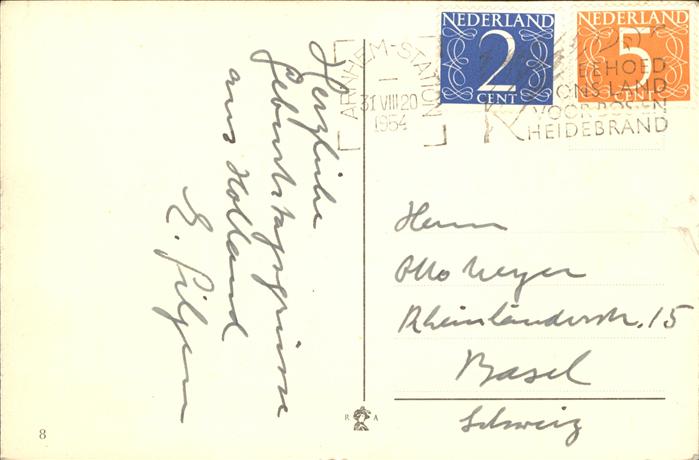 NEDERLAND
2
CENT
NEDERLAND
5
CENT
ARNHEM-STATION
31 VIII 20
1954
BEHOED
ONS LAND
VOOR BOS EN
HEIDEBRAND
Herzliche
Geburtstagsgrüsse
aus Holland
E. Gilgen
Herrn
Otto Meyer
Rheinländerstr. 15
Basel
Schweiz
R A
8